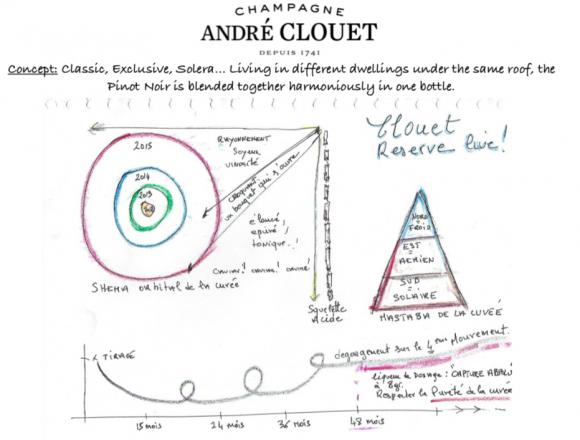 CHAMPAGNE
ANDRÉ CLOUET
DEPUIS 1741
Concept: Classic, Exclusive, Solera... Living in different dwellings under the same roof, the
Pinot Noir is blended together harmoniously in one bottle.
Clouet
Reserve live!
RAYONNEMENT
Soyeux
vinosité
Croquant
un bouquet qui s'ouvre
2015
2014
2013
élancé,
épuré,
tonique..!
SHEMA orbital de la cuvée
Squelette
Acide
NORD
=
FROID
EST
=
AERIEN
SUD
=
SOLAIRE
MASTABA DE LA CUVÉE
x TIRAGE
degorgement sur le 4em mouvement.
liqueur de Dosage:
à 8gr.
Respecter la Pureté de la cuvée
15 mois
24 mois
36 mois
48 mois